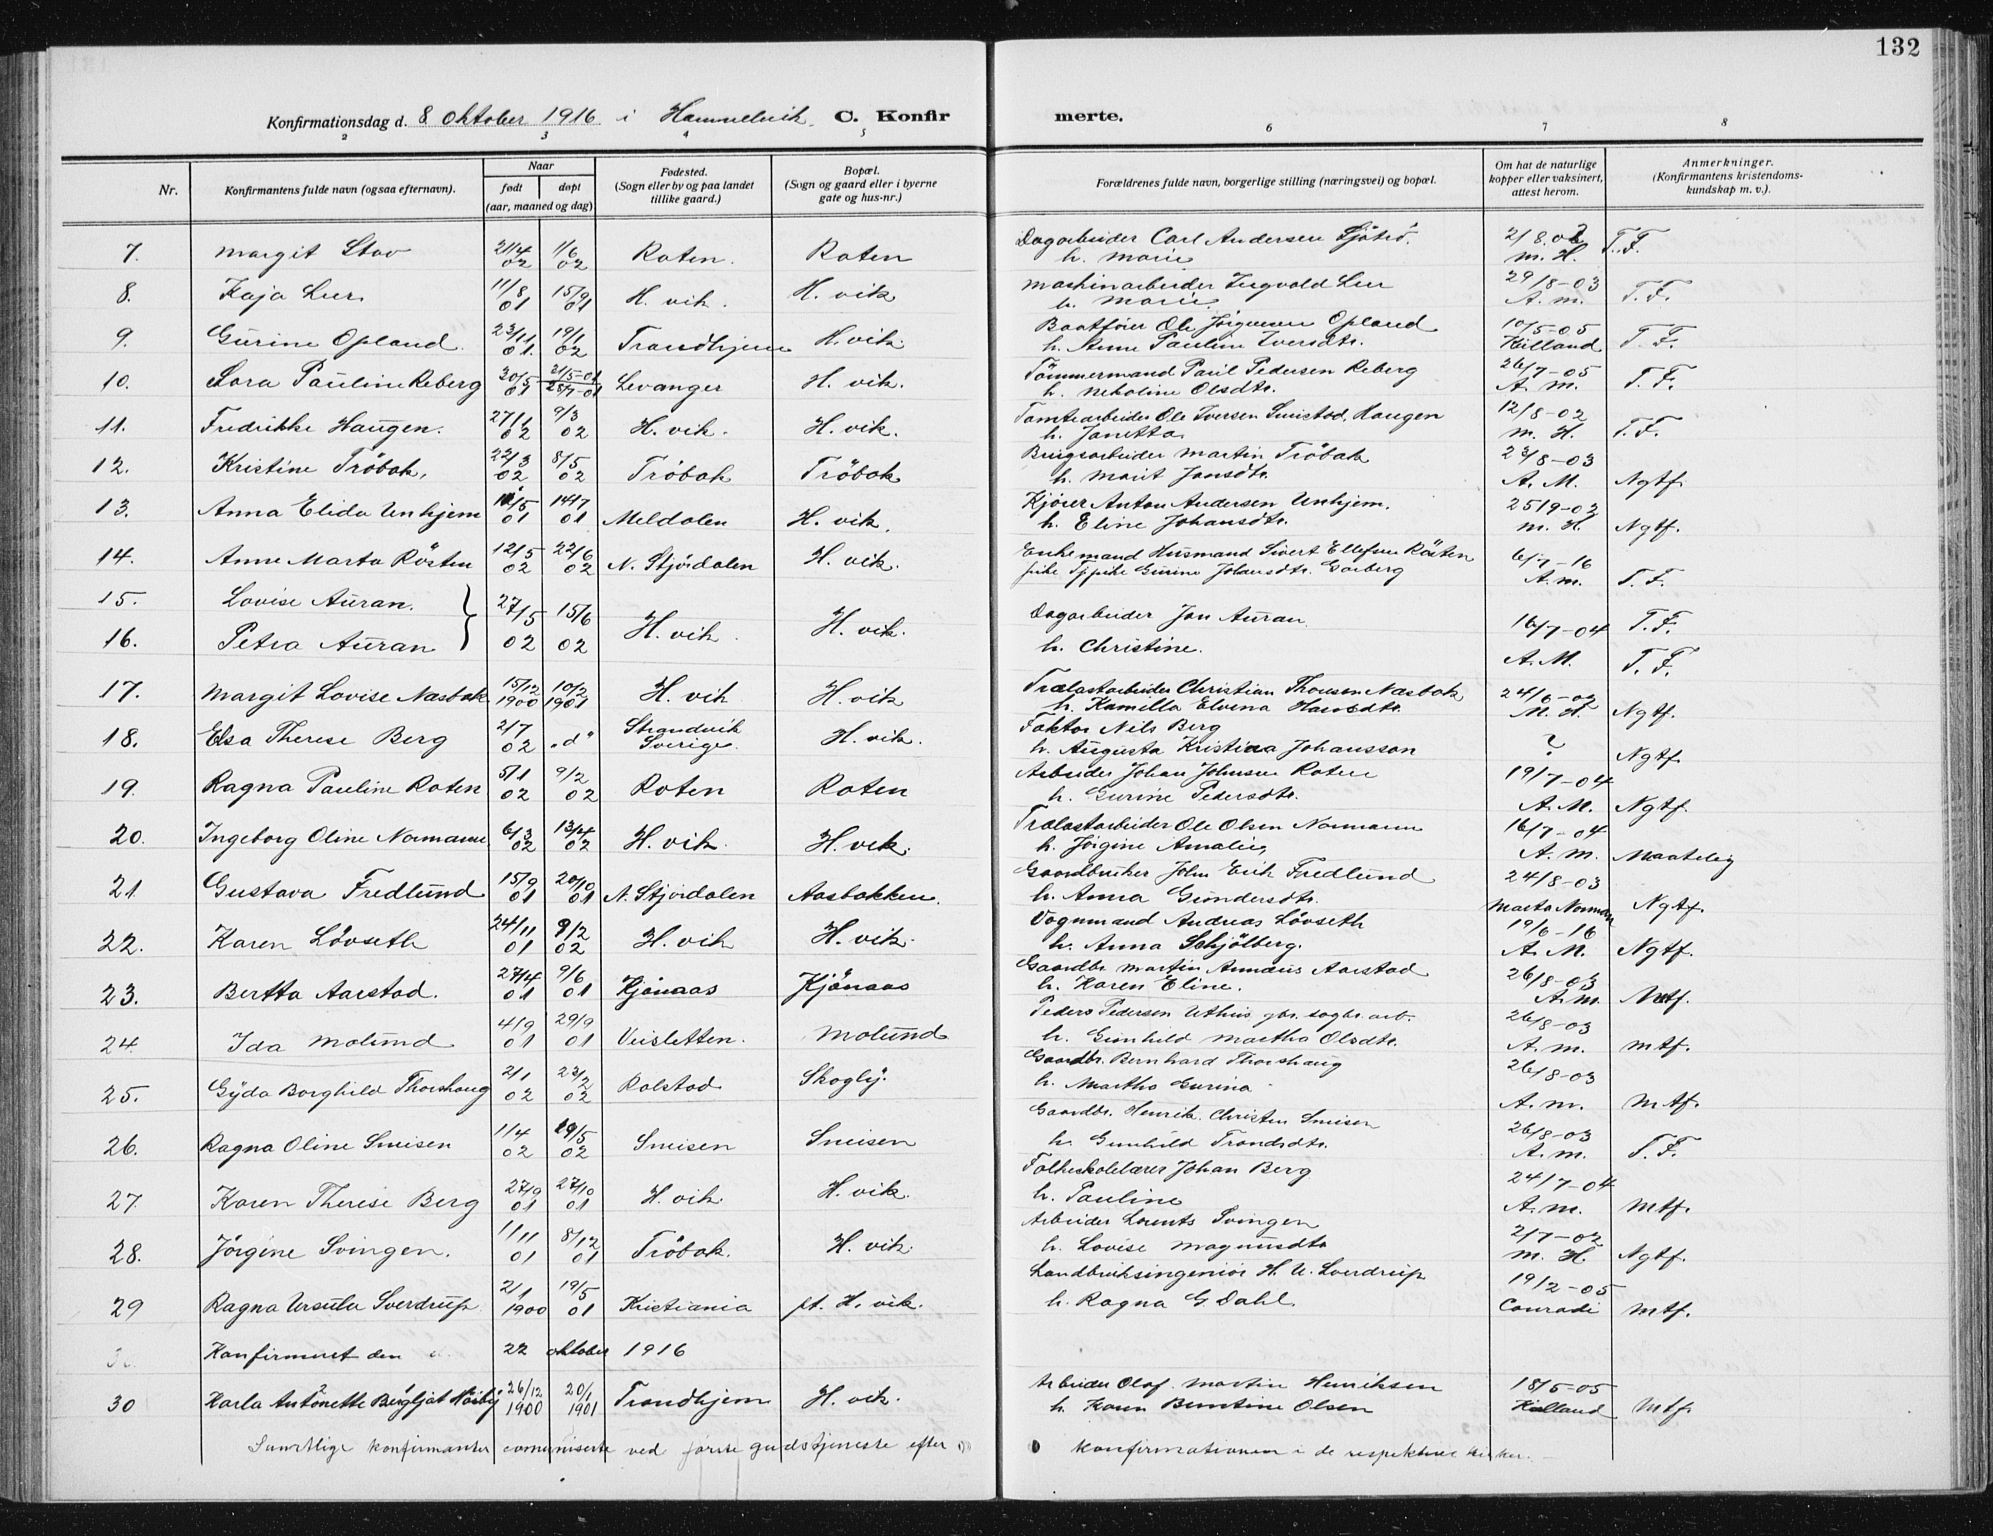 132
Konfirmationsdag d. 8 oktober 1916 i Hammelvik. C. Konfirmerte.
2 3 4 5 6 7 8
Nr. Konfirmantens fulde navn (ogsaa efternavn). Naar født døpt (aar, maaned og dag) Fødested. (Sogn eller by og paa landet tillike gaard.) Bopæl. (Sogn og gaard eller i byerne gate og hus-nr.) Forældrenes fulde navn, borgerlige stilling (næringsvei) og bopæl. Om hat de naturlige kopper eller vaksinert, attest herom. Anmerkninger. (Konfirmantens kristendomskundskap m. v.).
7. Margit Stav 21/4 02 1/6 02 Roten. Roten Dagarbeider Carl Andersen h. Marie 2/8.02 M. H. T.F.
8. Kaja Leer. 11/8 01 15/9 01 H. vik. H. vik Maskinarbeider Ingvald Leer h. Marie. 29/8-03 A. M. T.F.
9. Gurine Opland. 23/11 01. 19/1 02 Trondhjem H. vik. Baatfører Ole Jørgensen Opland h. Anne Pauline Iversdtr. 10/5-05 Killand T.F.
10. Lora Pauline Reberg 20/5 01 21/5-01 28/7-01 Levanger H. vik. Tømmermand Paul Pedersen Reberg h. Nekoline Olsdtr. 26/7-05 A. M. T.F.
11. Fredrikke Haugen. 27/1 02 9/3 02 H. vik. H. vik. Tomtearbeider Ole Iversen Smistad, Haugen h. Janetta 12/8-02 M. H. T.F.
12. Kristine Trøbak, 22/3 02 8/5 02 Trøbak Trøbak Brugsarbeider Martin Trøbak h. Marit Jansdtr. 23/8-03 A. M. Ngtf.
13. Anna Elida Unhjem 01 14/7 01 Meldalen H. vik. Kjører Anton Andersen Unhjem. h. Eline Johansdtr. 25/9-02 M. H. Ngtf.
14. Anne Marta Røsten 12/5 02 22/6 02 N. Stjørdalen H. vik. Enkemand Husmand Sivert Ellefsen Røsten pike Gurine Johansdtr. Garberg 6/7-16 A. M. T.F.
15. Lovise Auran. 27/5 15/6 H. vik. H. vik. Dagarbeider Jon Auran 16/7-04 T.F.
16. Petra Auran 02 02 h. Christine. A. M. T.F.
17. Margit Lovise Næsbak 15/12 1900 10/2 1901 H. vik H. vik Trælastarbeider Christian Thoresen Næsbak h. Kamilla Elvina Hansdtr. 24/6-02 M. H. Ngtf.
18. Elsa Therese Berg 2/7 02 "d" Strandvik Sverige. H. vik. Faktor Nils Berg h. Augusta Kristina Johansson ? Ngtf.
19. Ragna Pauline Roten 5/1 02 9/2 02 Roten Roten Arbeider Johan Johnsen Roten h. Gurine Pedersdtr. 19/7-04 A. M. Ngtf.
20. Ingeborg Oline Normann 6/3 02 13/4 02 H. vik. H. vik. Trælastarbeider Ole Olsen Normann h. Jørgine Amalie 16/7-04 A. M. Maatelig
21. Gustava Fredlund 15/9 01 20/10 01 N. Stjørdalen Aasbakken. Gaardbruker John Erik Fredlund h. Anna Gundersdtr. 24/8-03 Marta Norman Ngtf.
22. Karen Løvseth 24/11 01 9/2 02 H. vik H. vik. Vognmand Andreas Løvseth h. Anna Schjølberg. 19/6-16 A. M. Ngtf.
23. Bertta Aarstad. 27/4 01 9/6 01 Kjønaas Kjønaas Gaardbr. Martin Annæus Aarstad h. Karen Eline. 26/8-03 A. M. Mtf.
24. Ida Molund 4/9 01 29/9 01 Veisletten. Molund Peder Pedersen Uthus gbr. sagbr. arb. h. Gunhild Martha Olsdtr. 26/8-03 A. M. Mtf.
25. Gyda Borghild Thorshaug 2/1 02 23/2 02 Rolstad Skogly. Gaardbr. Bernhard Thorshaug h. Martha Gurina 26/8-03 A. M. Mtf.
26. Ragna Oline Smisen 1/4 02 19/5 02 Smisen Smisen Gaardbr. Henrik Christen Smisen h. Gunhild Trondsdtr. 26/8-03 A. M. T.F.
27. Karen Therese Berg 27/9 01 27/10 01 H. vik. H. vik. Folkeskolelærer Johan Berg h. Pauline 24/7-04 A. M. Mtf.
28. Jørgine Svingen. 1/11 01 8/12 01 Trøbak. H. vik. Arbeider Lorents Svingen h. Lovise Magnusdtr 2/7-02 M. H. Ngtf.
29 Ragna Ursula Sverdrup. 2/1 1900 19/5 01 Kristiania pt. H. vik. Landbruksingeniør H. U. Sverdrup h. Ragna G. Dahl. 19/2-05 Conradi Mtf.
Konfirmeret den 22 oktober 1916
30 Karla Antonette Bergljot Høiby 26/12 1900 20/1 1901 Trondhjem H. vik. Arbeider Olaf Martin Henriksen h. Karen Berntine Olsen 18/5-05 Killand Mtf.
Samtlige konfirmanter comuniserte ved første gudstjeneste efter konfirmationen i de respektive kirker.